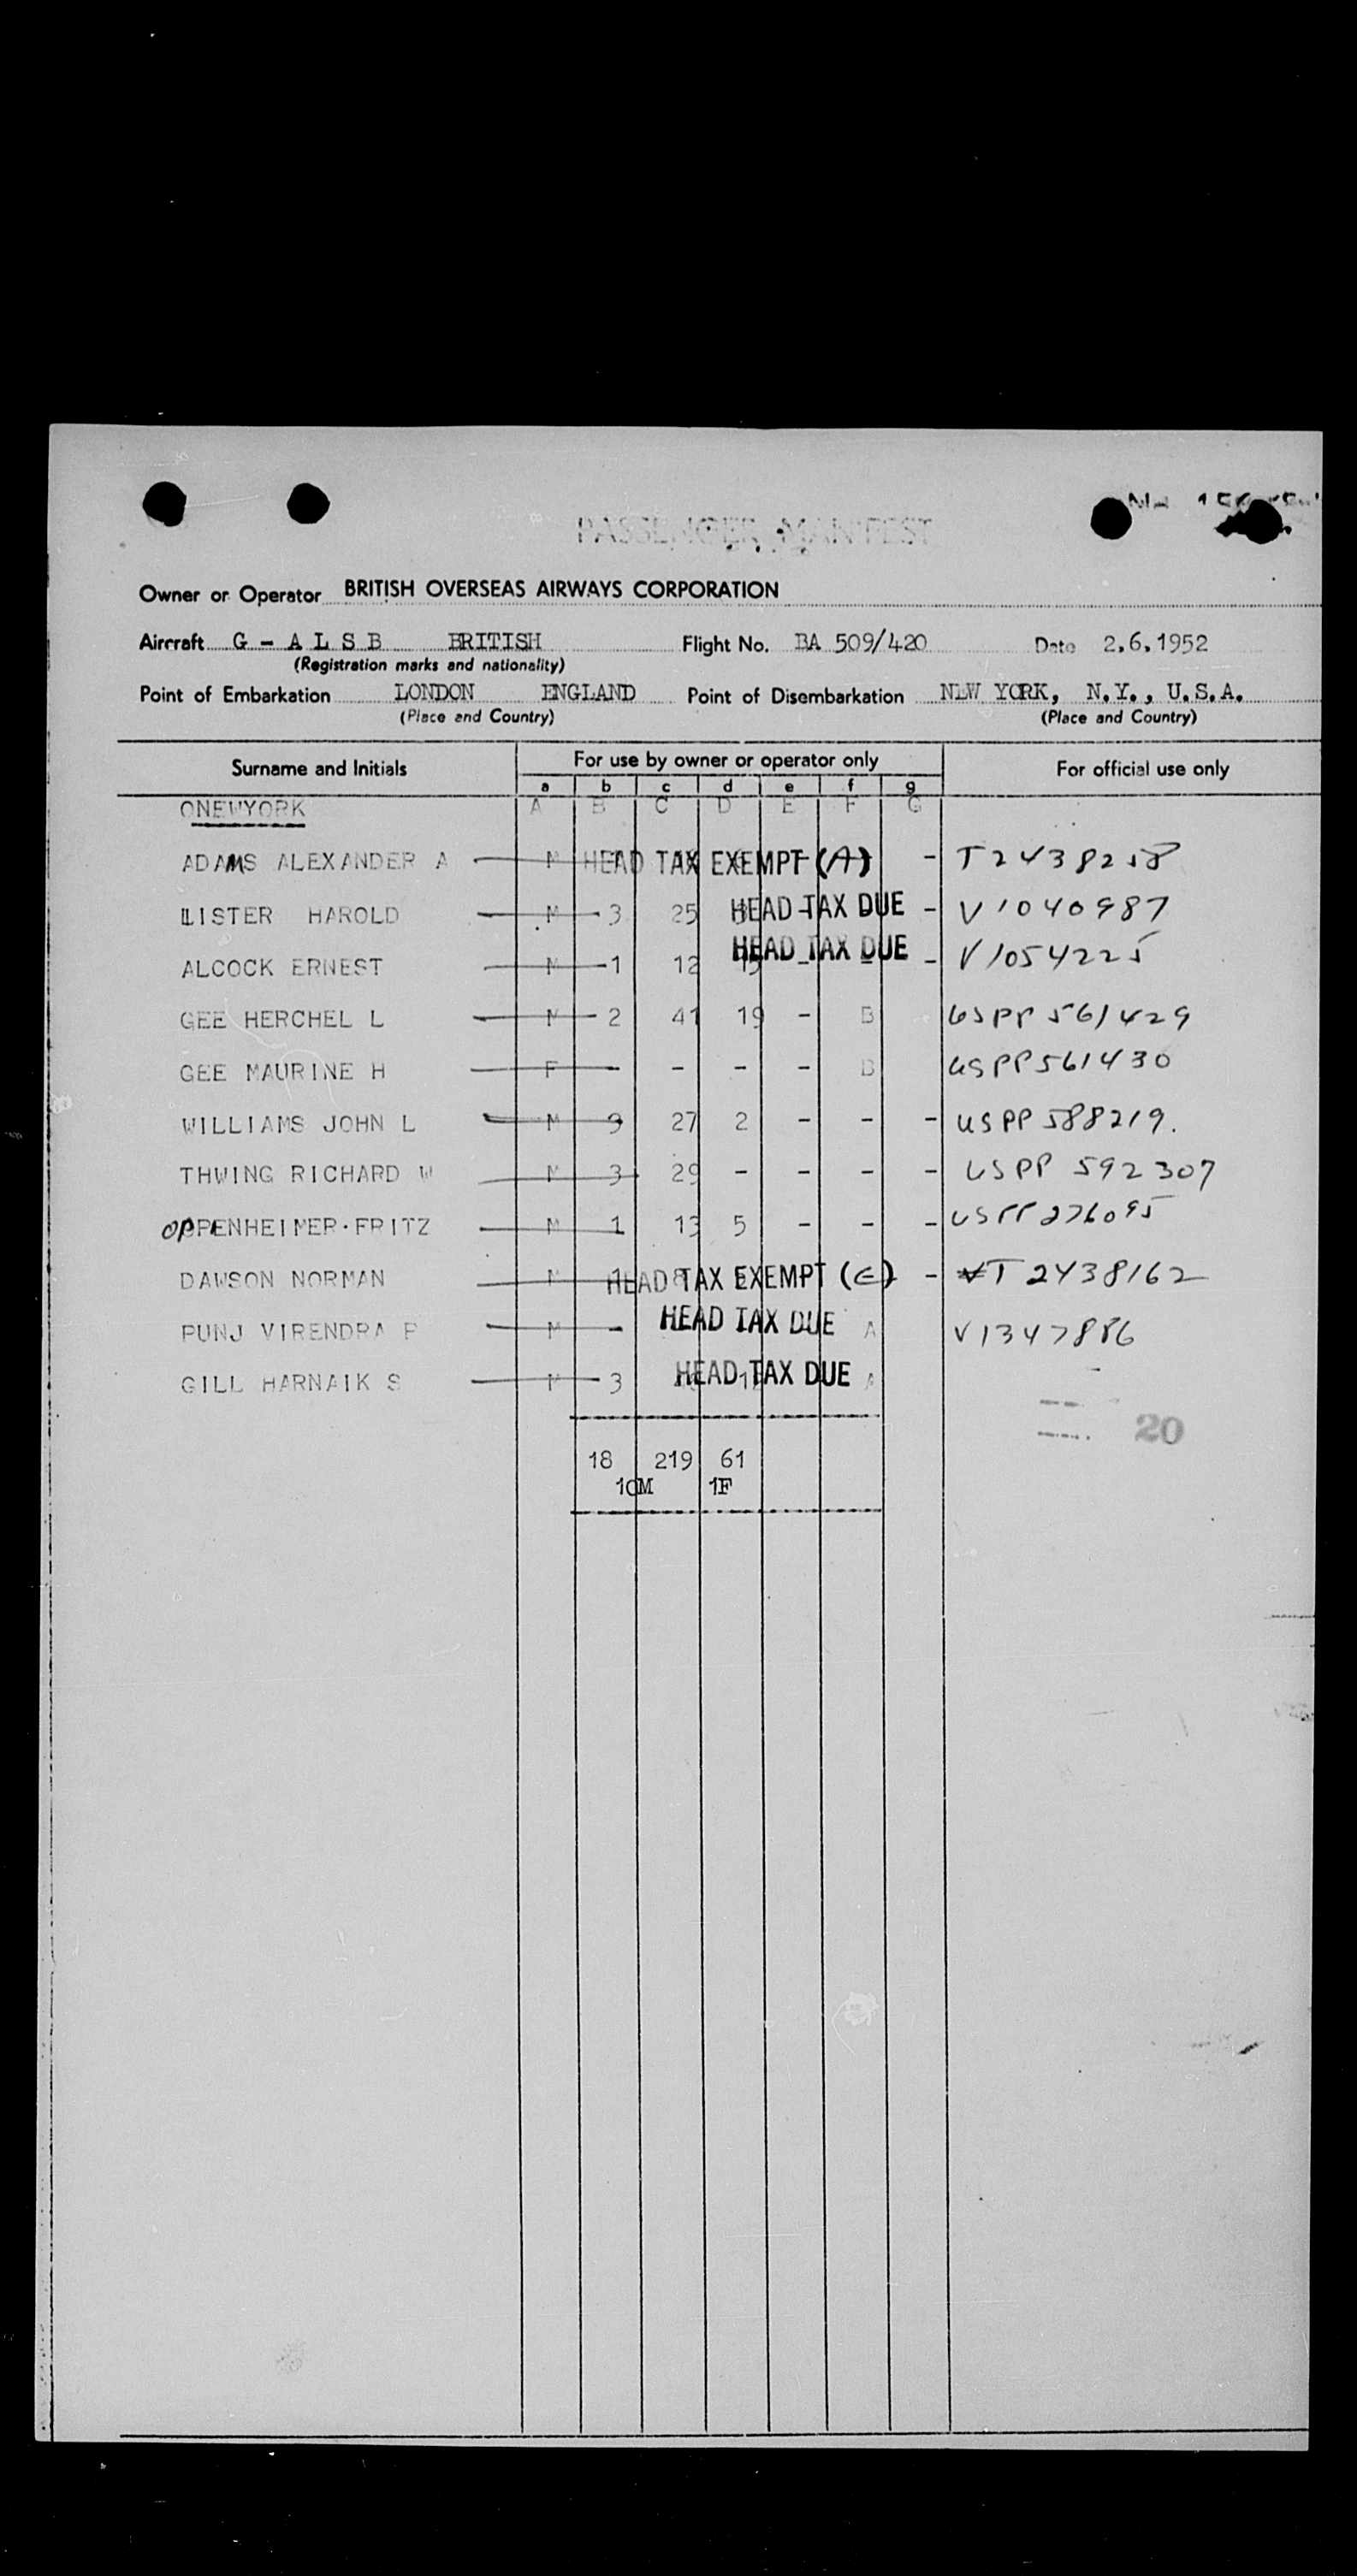 PASSENGER MANIFEST
Owner or Operator BRITISH OVERSEAS AIRWAYS CORPORATION
Aircraft G - A L S B BRITISH Flight No. BA 509/420 Date 2.6.1952
(Registration marks and nationality)
Point of Embarkation LONDON ENGLAND Point of Disembarkation NEW YORK, N.Y., U.S.A.
(Place and Country) (Place and Country)
Surname and Initials For use by owner or operator only For official use only
a b c d e f g
ONEWYORK A B C D E F G
ADAMS ALEXANDER A M HEAD TAX EXEMPT (A) - T2438258
LISTER HAROLD M 3 25 HEAD TAX DUE - V1040987
ALCOCK ERNEST M 1 12 HEAD TAX DUE - V1054225
GEE HERCHEL L M 2 41 19 - B USPP 561429
GEE MAURINE H F - - - - B USPP561430
WILLIAMS JOHN L M 27 2 - - - USPP 588219.
THWING RICHARD W M 3 29 - - - - USPP 592307
OPPENHEIMER FRITZ M 1 13 5 - - - USPP 276095
DAWSON NORMAN M HEAD TAX EXEMPT (E) - T 2438162
PUNJ VIRENDRA P M - HEAD TAX DUE A V1347886
GILL HARNAIK S M 3 HEAD TAX DUE A -
20
18 219 61
10M 1F